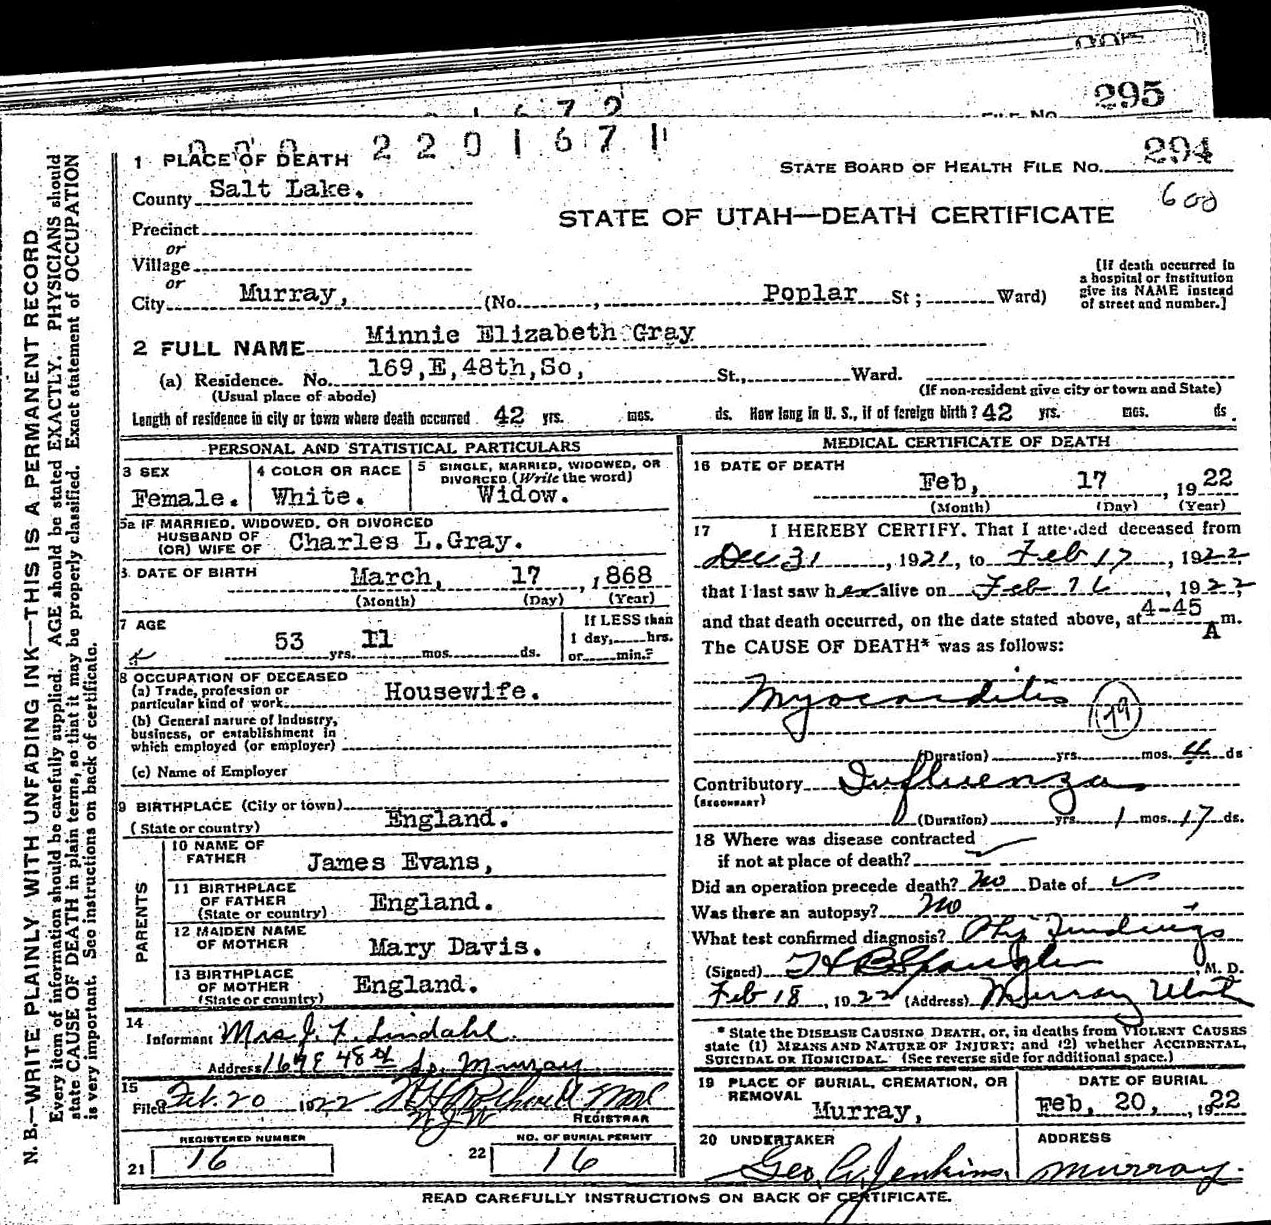 295
FILE No.
1672
000 2201671
294
600
1 PLACE OF DEATH
STATE BOARD OF HEALTH FILE No.
County Salt Lake.
STATE OF UTAH—DEATH CERTIFICATE
Precinct
or
Village
or
City Murray, (No. , Poplar St ; Ward)
[If death occurred in a hospital or institution give its NAME instead of street and number.]
2 FULL NAME Minnie Elizabeth Gray
(a) Residence. No. 169,E,48th,So, St., Ward.
(Usual place of abode) (If non-resident give city or town and State)
Length of residence in city or town where death occurred 42 yrs. mos. ds. How long in U. S., if of foreign birth? 42 yrs. mos. ds.
PERSONAL AND STATISTICAL PARTICULARS
3 SEX Female.
4 COLOR OR RACE White.
5 SINGLE, MARRIED, WIDOWED, OR DIVORCED (Write the word) Widow.
5a IF MARRIED, WIDOWED, OR DIVORCED
HUSBAND OF
(OR) WIFE OF Charles L.Gray.
6. DATE OF BIRTH March, 17 , 1868
(Month) (Day) (Year)
7 AGE 53 yrs. 11 mos. ds.
If LESS than
1 day, hrs.
or min.?
8 OCCUPATION OF DECEASED
(a) Trade, profession or
particular kind of work Housewife.
(b) General nature of Industry,
business, or establishment in
which employed (or employer)
(c) Name of Employer
9 BIRTHPLACE (City or town)
(State or country) England.
PARENTS
10 NAME OF
FATHER James Evans,
11 BIRTHPLACE
OF FATHER England.
(State or country)
12 MAIDEN NAME
OF MOTHER Mary Davis.
13 BIRTHPLACE
OF MOTHER England.
(State or country)
14
Informant Mrs J. F. Lindahl
Address 169 E 48th So. Murray
15
Filed Feb. 20 1922
REGISTRAR
REGISTERED NUMBER
21 16
NO. OF BURIAL PERMIT
22 16
MEDICAL CERTIFICATE OF DEATH
16 DATE OF DEATH
Feb, 17 , 1922
(Month) (Day) (Year)
17 I HEREBY CERTIFY. That I attended deceased from
Dec 31 , 1921, to Feb 17 , 1922
that I last saw her alive on Feb 16 , 1922,
and that death occurred, on the date stated above, at 4-45 A m.
The CAUSE OF DEATH* was as follows:
Myocarditis
(Duration) yrs. mos. 4 ds
Contributory Influenza
(SECONDARY)
(Duration) yrs. 1 mos. 17 ds.
18 Where was disease contracted
if not at place of death?
Did an operation precede death? No Date of
Was there an autopsy? No
What test confirmed diagnosis? Phy Findings
(Signed) , M. D.
Feb 18 , 1922 (Address) Murray Utah
* State the DISEASE CAUSING DEATH, or, in deaths from VIOLENT CAUSES
state (1) MEANS AND NATURE OF INJURY; and (2) whether ACCIDENTAL,
SUICIDAL OR HOMICIDAL. (See reverse side for additional space.)
19 PLACE OF BURIAL, CREMATION, OR
REMOVAL Murray,
DATE OF BURIAL
Feb, 20, , 1922
20 UNDERTAKER
Geo. A. Jenkins.
ADDRESS
Murray.
READ CAREFULLY INSTRUCTIONS ON BACK OF CERTIFICATE.
N. B.—WRITE PLAINLY WITH UNFADING INK—THIS IS A PERMANENT RECORD
Every item of information should be carefully supplied. AGE should be stated EXACTLY. PHYSICIANS should
state CAUSE OF DEATH in plain terms, so that it may be properly classified. Exact statement of OCCUPATION
is very important. See instructions on back of certificate.